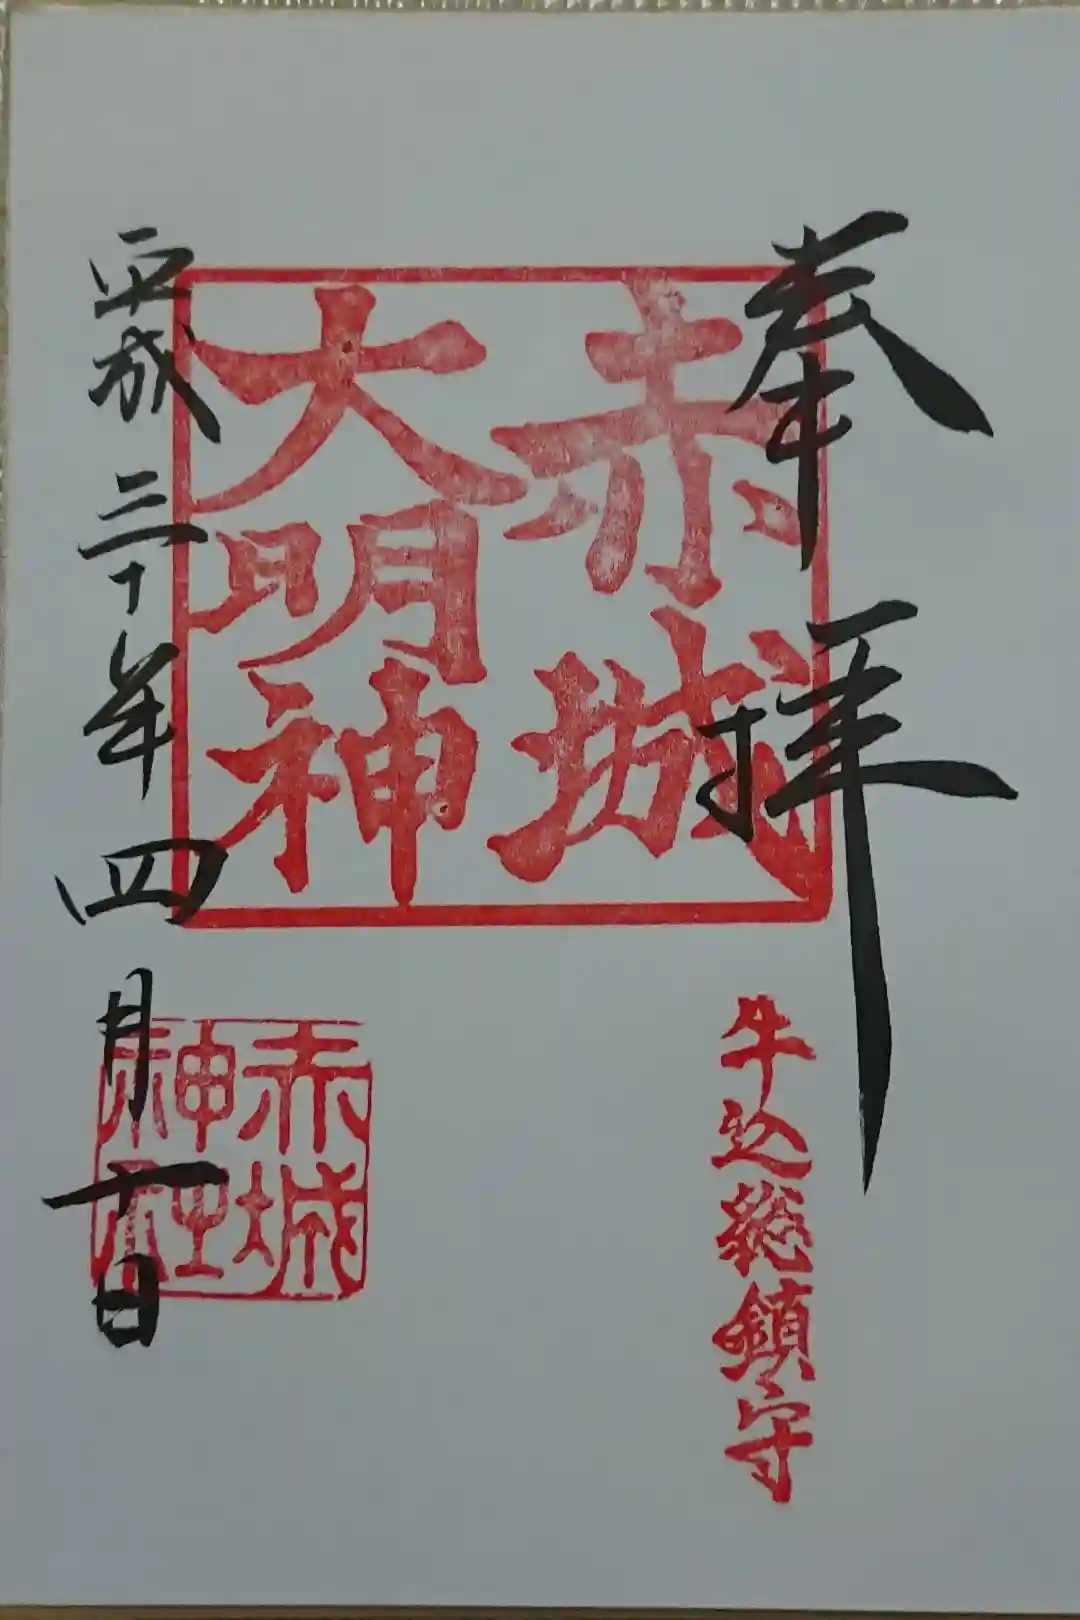 奉拝
赤城
大明神
牛込総鎮守
赤城
神社
平成三十年四月十日